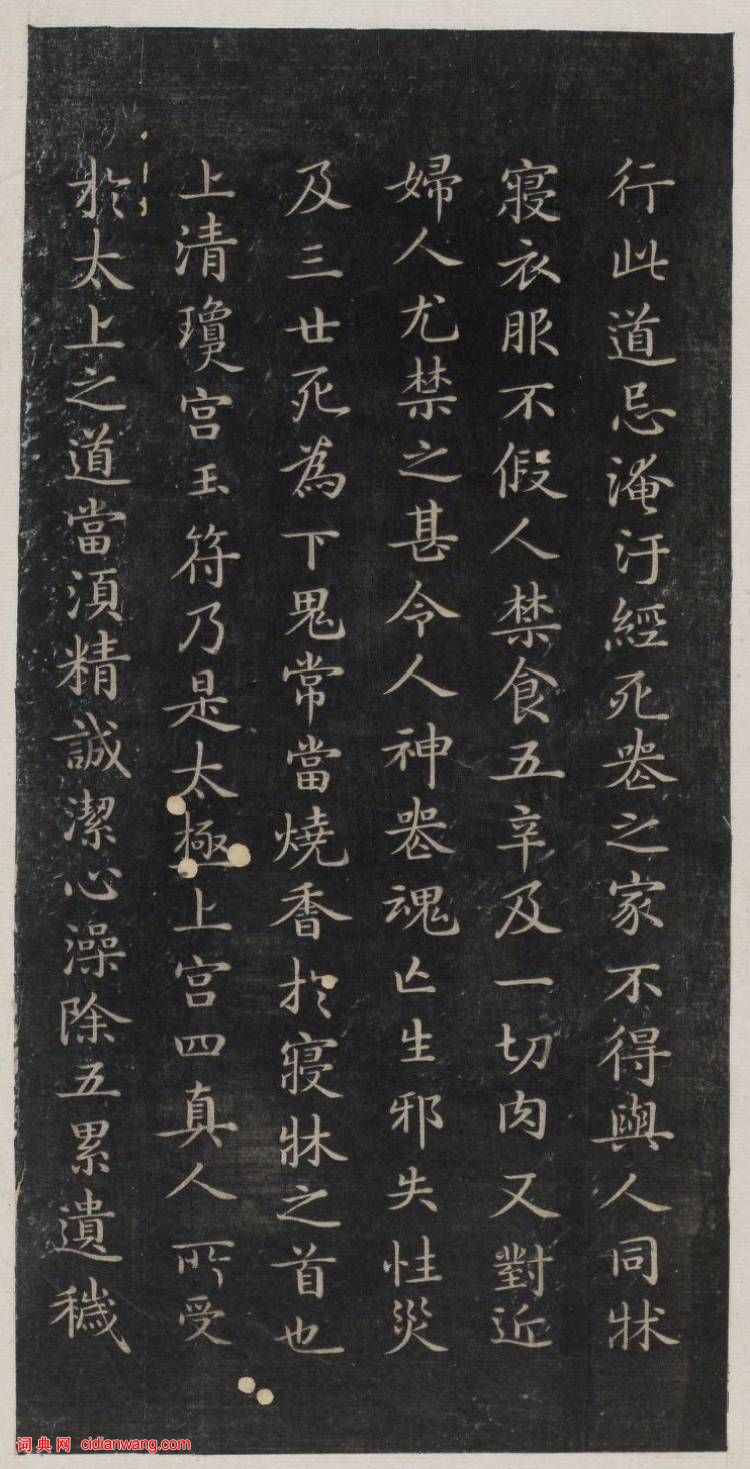 行此道忌淹汙經死喪之家不得與人同牀
寢衣服不假人禁食五辛及一切肉又對近
婦人尤禁之甚令人神喪魂亡生邪失性災
及三世死為下鬼常當燒香於寢牀之首也
上清瓊宮玉符乃是太極上宮四真人所受
於太上之道當須精誠潔心澡除五累遺穢
词典网 cidianwang.com